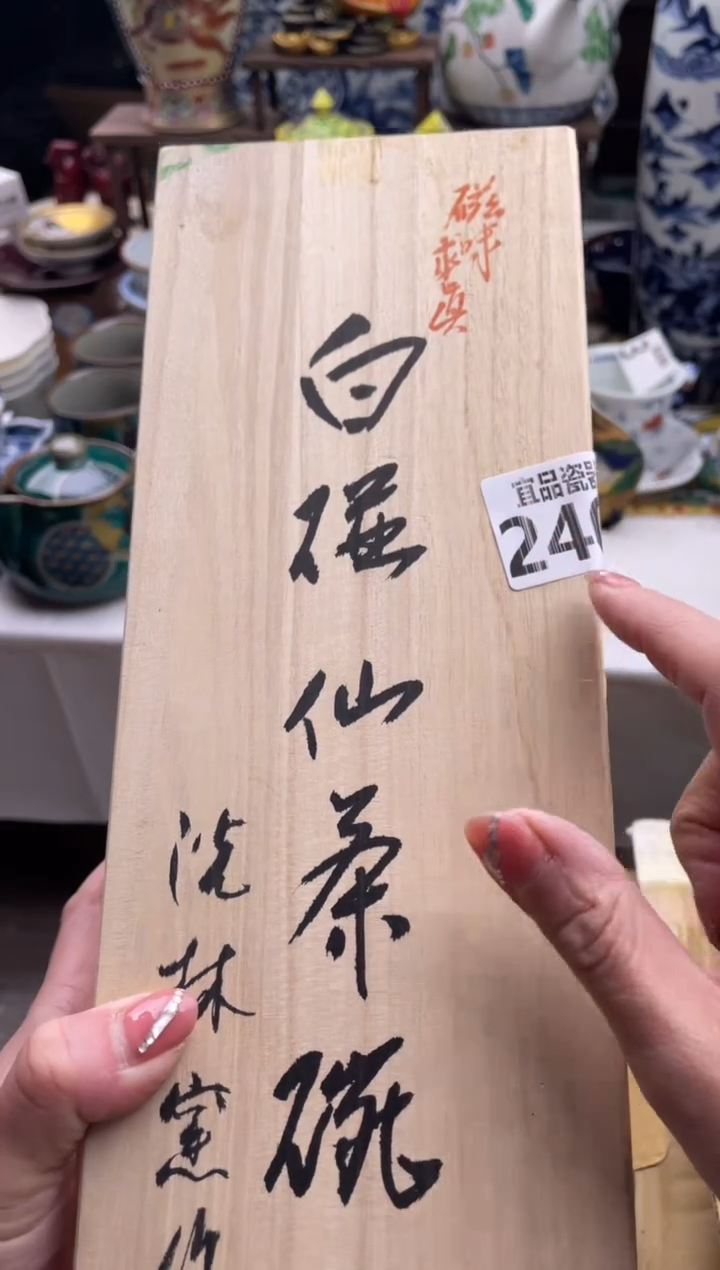 磁味
求真
白磁仙茶碗
洸林窯作
宜品瓷器
240